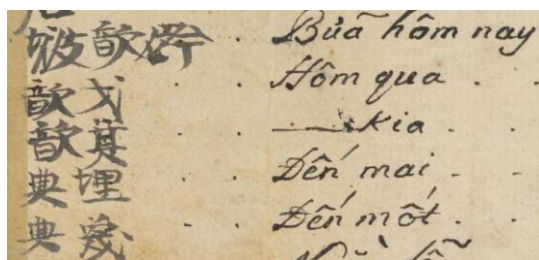 歆 . . Buả hôm nay
歆戈 . . Hôm qua . .
歆 . . —— Kia .
典埋 . . Đến mai . .
典 . . Đến mốt . .